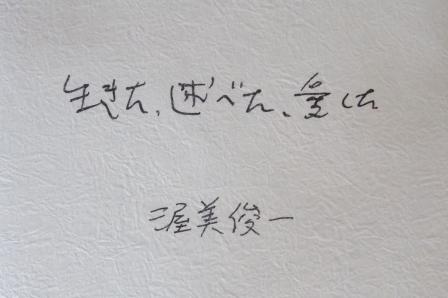 生きた、述べた、愛した
渥美俊一